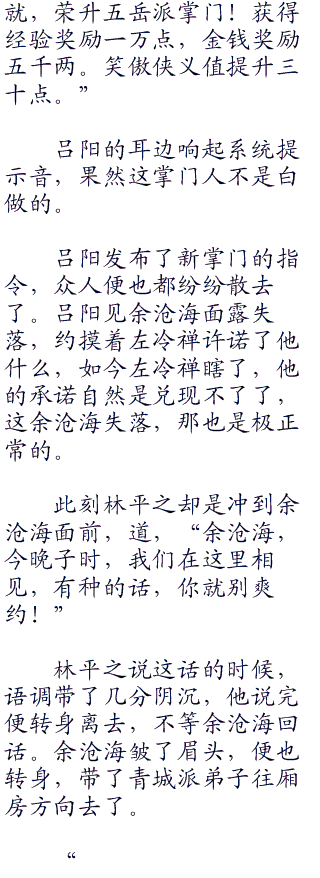 就，荣升五岳派掌门！获得
经验奖励一万点，金钱奖励
五千两。笑傲侠义值提升三
十点。”
吕阳的耳边响起系统提
示音，果然这掌门人不是白
做的。
吕阳发布了新掌门的指
令，众人便也都纷纷散去
了。吕阳见余沧海面露失
落，约摸着左冷禅许诺了他
什么，如今左冷禅瞎了，他
的承诺自然是兑现不了了，
这余沧海失落，那也是极正
常的。
此刻林平之却是冲到余
沧海面前，道，“余沧海，
今晚子时，我们在这里相
见，有种的话，你就别爽
约！”
林平之说这话的时候，
语调带了几分阴沉，他说完
便转身离去，不等余沧海回
话。余沧海皱了眉头，便也
转身，带了青城派弟子往厢
房方向去了。
“